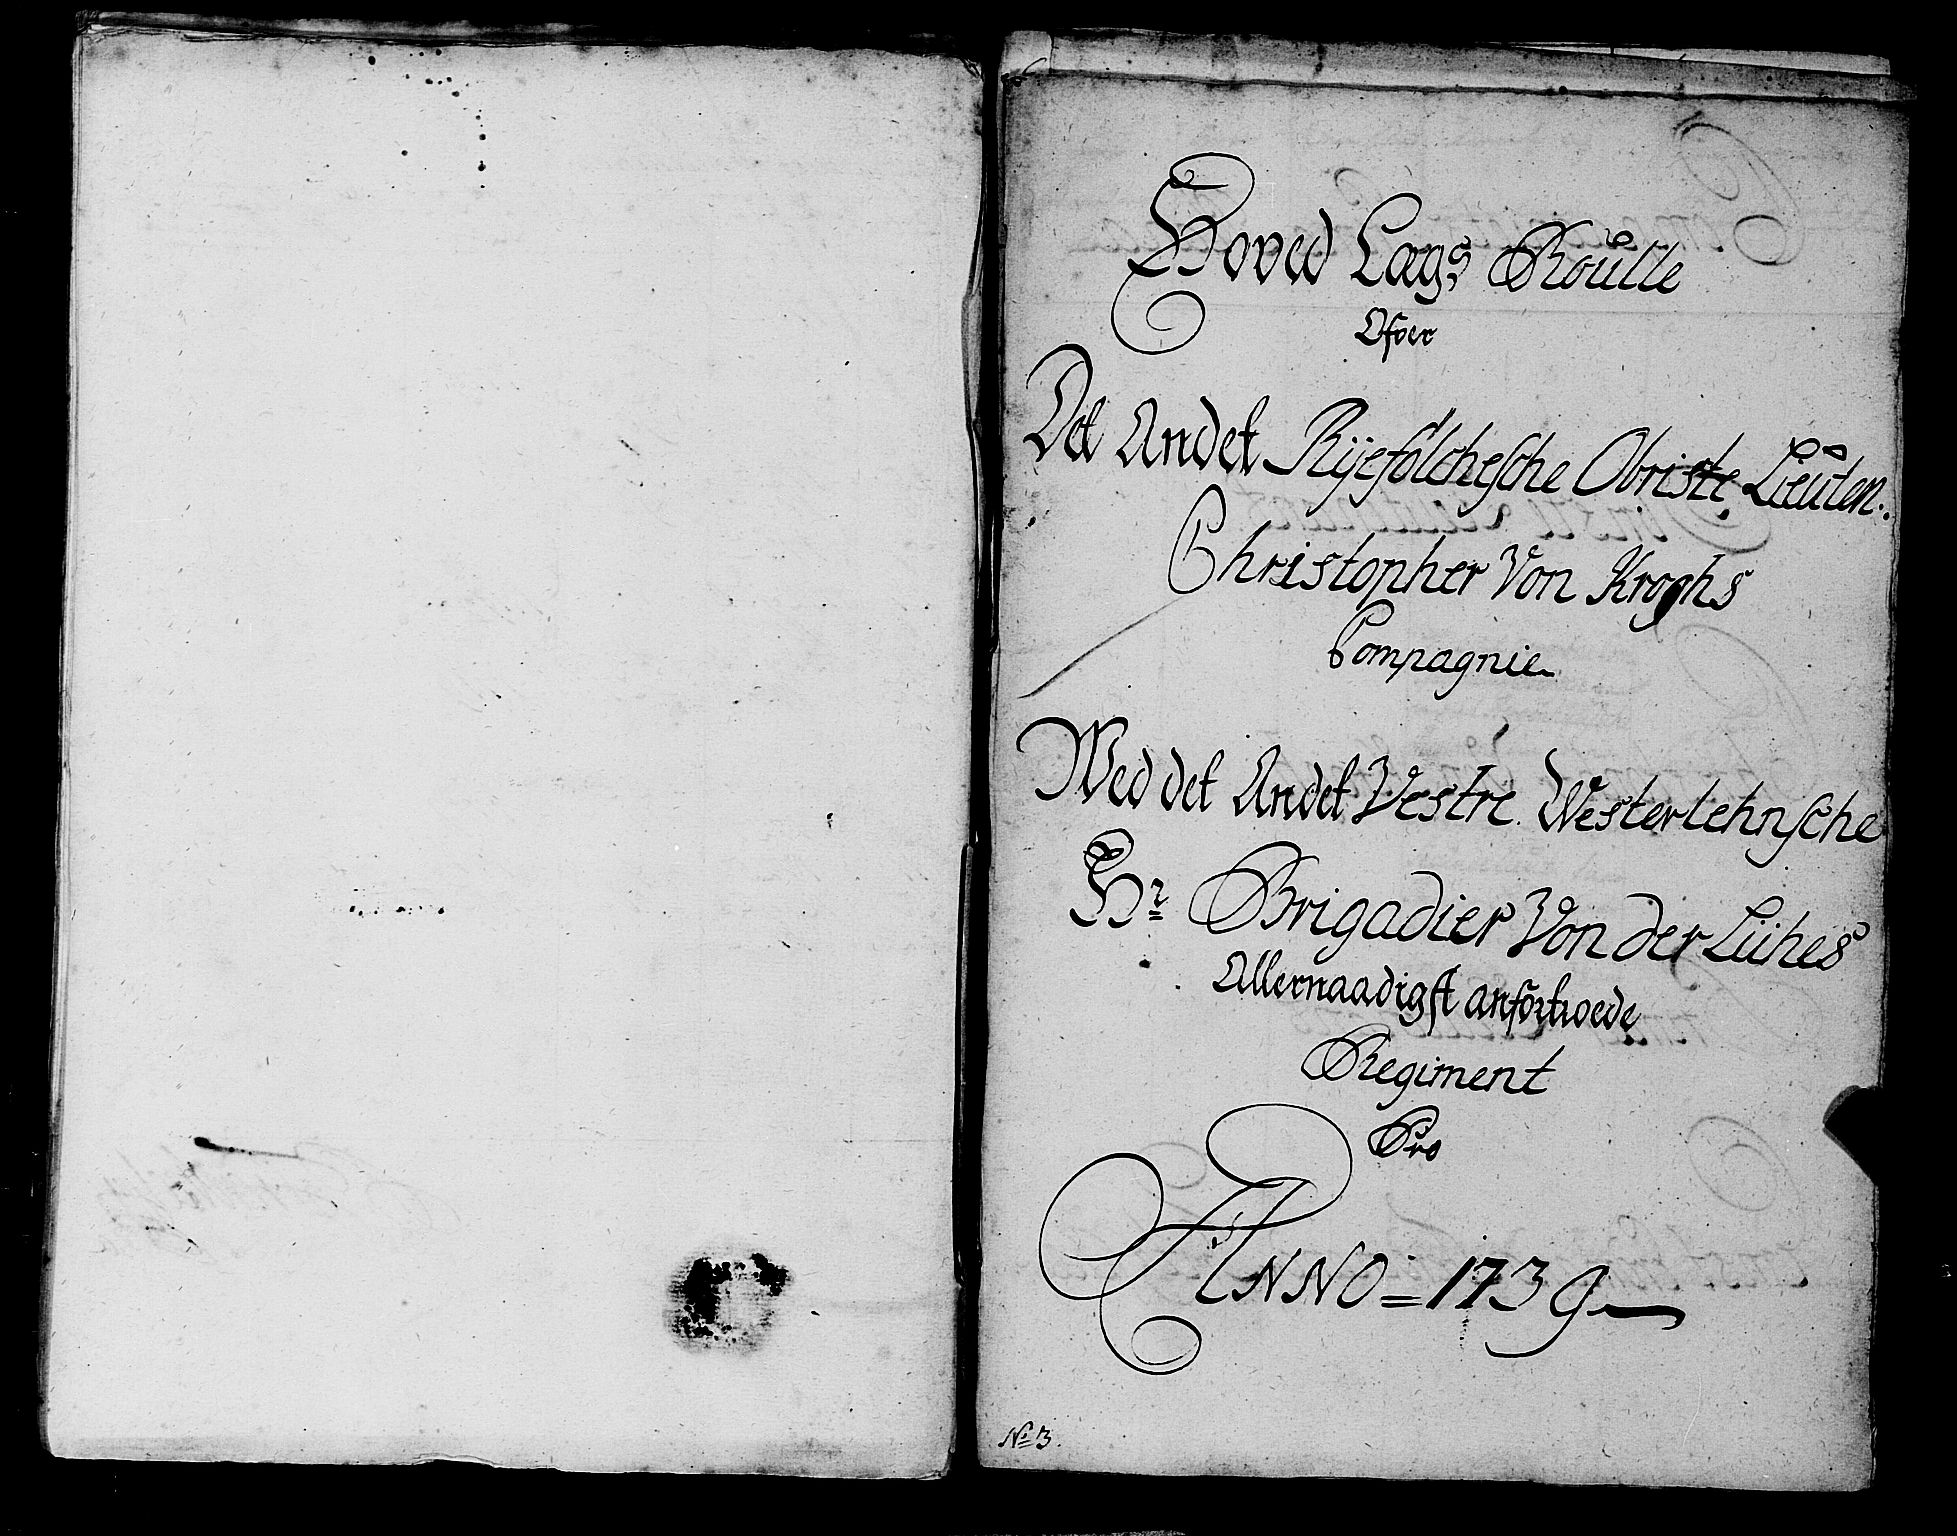 Hoved Lægs Roulle
Ofver
Det Andet Ryefölchesche Obriste Lieuten:
Christopher Von Kroghs
Compagnie
Wed det Andet Vestre Westerlehnsche
Hr Brigadier Von der Lühes
Allernaadigst anfortroede
Regiment
Pro
ANNO = 1739
No 3.